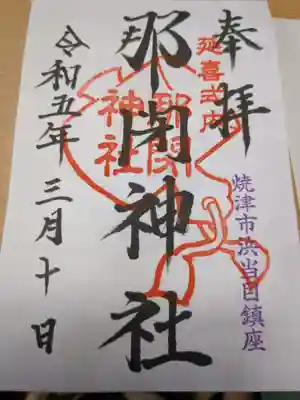 奉拝
延喜式内
焼津市浜当目鎮座
那閇神社
那閇神社
令和五年三月十日